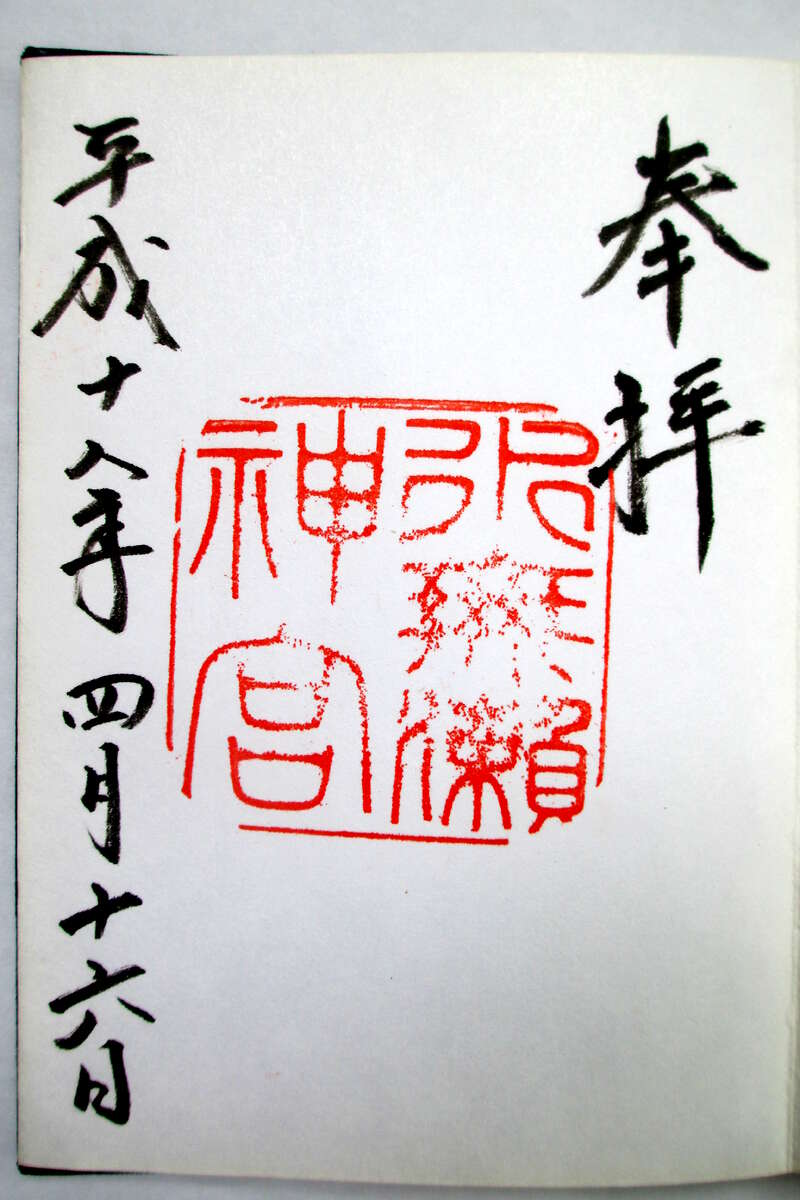 奉拝
水無瀬
神宮
平成十八年四月十六日